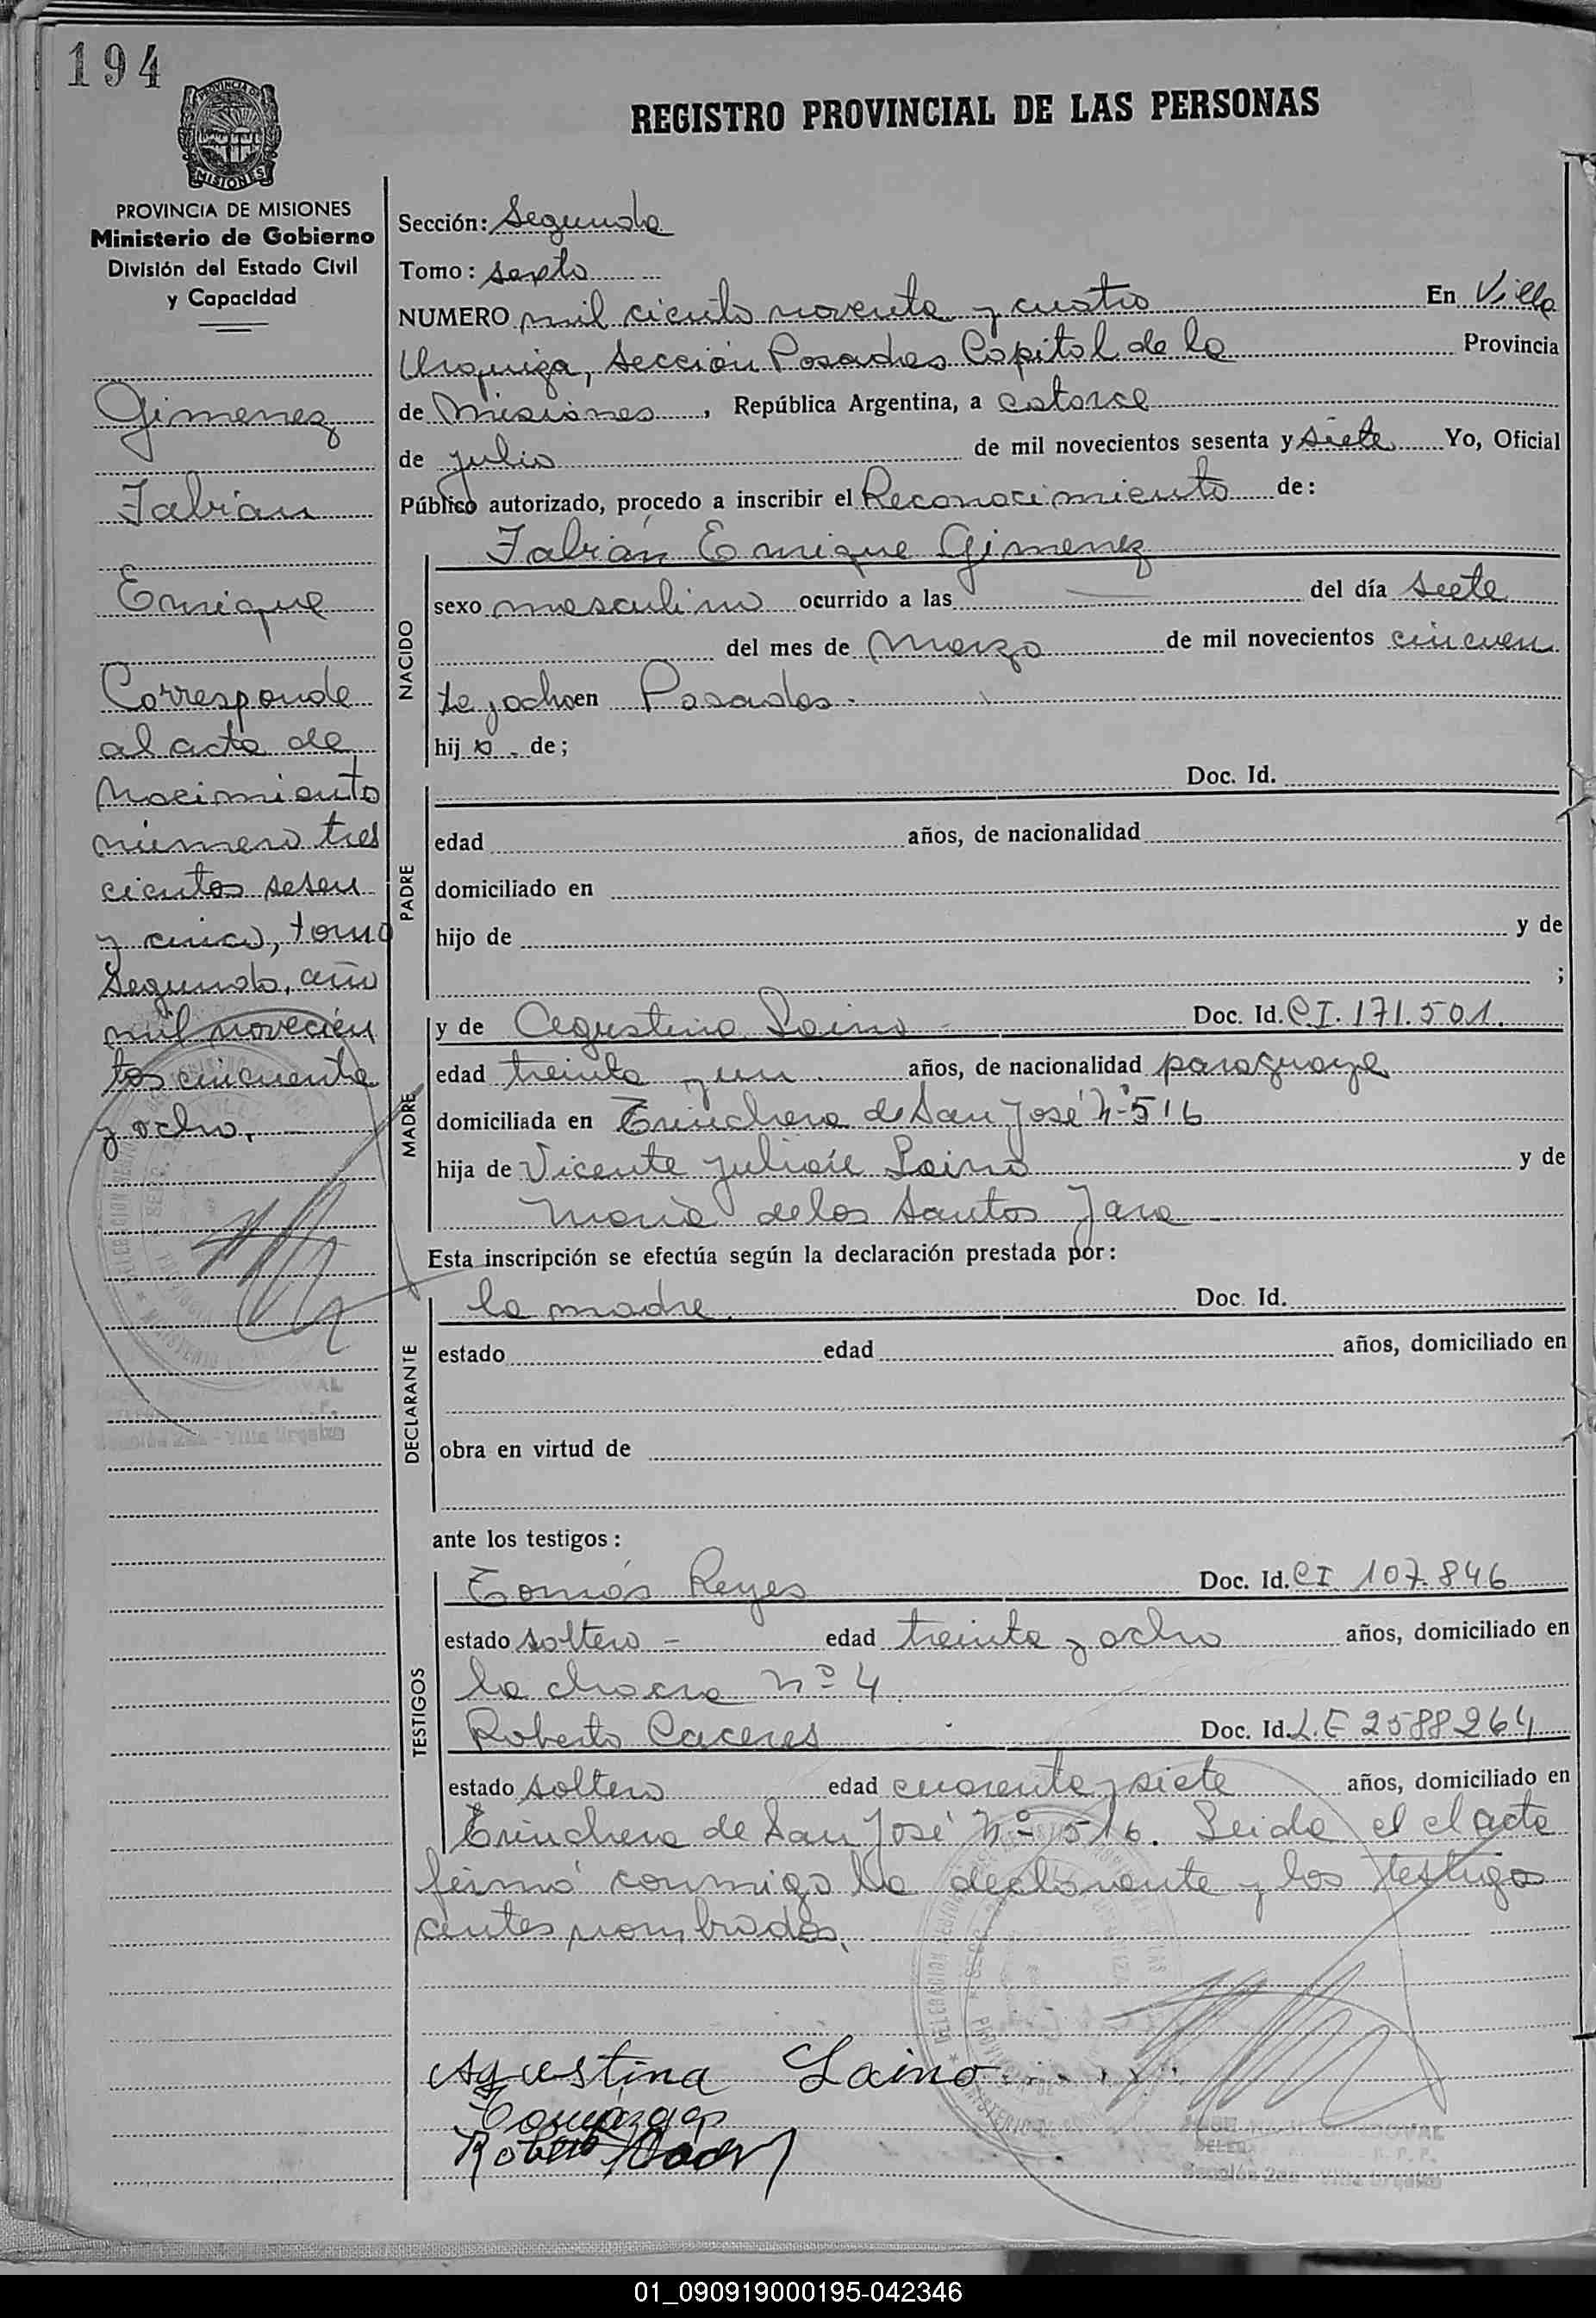 194
REGISTRO PROVINCIAL DE LAS PERSONAS
PROVINCIA DE
MISIONES
PROVINCIA DE MISIONES
Ministerio de Gobierno
División del Estado Civil
y Capacidad
Gimenez
Fabrián
Enrique
Corresponde
al acta de
Nacimiento
número tres
cientos sesen
y cinco, tomo
segundo, año
mil novecien
tos cincuenta
y ocho.
Sección: Segunda
Tomo: sexto
NUMERO mil ciento noventa y cuatro En Villa
Urquiza, Sección Posadas Capital de la Provincia
de Misiones, República Argentina, a catorce
de julio de mil novecientos sesenta y siete Yo, Oficial
Público autorizado, procedo a inscribir el Reconocimiento de:
Fabrián Enrique Gimenez
NACIDO
sexo masculino ocurrido a las — del día siete
del mes de Marzo de mil novecientos cincuen
ta y ocho en Posadas.
hijo. de;
Doc. Id.
PADRE
edad años, de nacionalidad
domiciliado en
hijo de y de
;
MADRE
y de Agustina Laino Doc. Id. C.I. 171.501.
edad treinta y un años, de nacionalidad paraguaya
domiciliada en Trinchera de San José Nº 516
hija de Vicente Julián Laino y de
María de los Santos Jara
Esta inscripción se efectúa según la declaración prestada por:
DECLARANTE
la madre. Doc. Id.
estado edad años, domiciliado en
obra en virtud de
ante los testigos:
TESTIGOS
Tomás Reyes Doc. Id. CI 107.846
estado soltero - edad treinta y ocho años, domiciliado en
la chacra Nº 4
Roberto Caceres Doc. Id. L.E 2588264
estado soltero edad cuarenta y siete años, domiciliado en
Trinchera de San José Nº 516. Leida el el acta
firmó conmigo la declarante y los testigos
antes nombrados.
Agustina Laino
Roberto
Sección 2da - Villa Urquiza
01_090919000195-042346